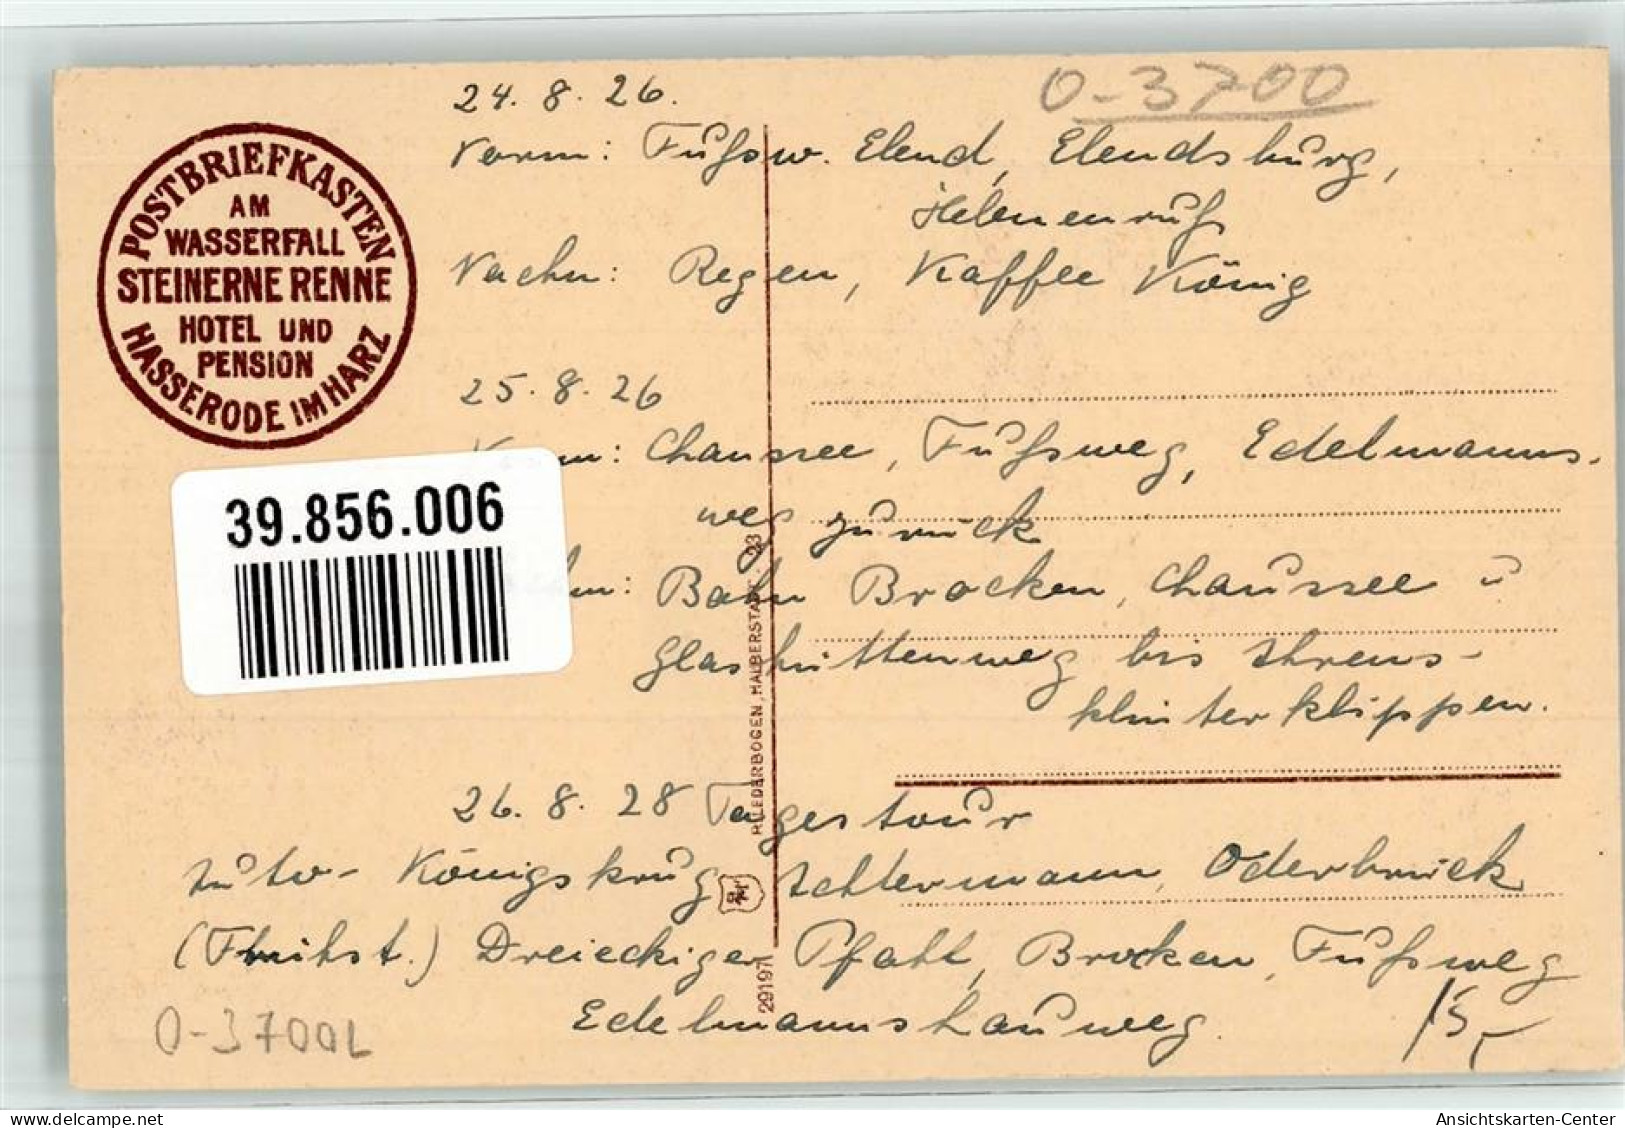 24. 8. 26.
O-3700
Vorm: Fußw. Elend, Elendsburg,
Helenenruh
Nachm: Regen, Kaffee König
POSTBRIEFKASTEN
AM
WASSERFALL
STEINERNE RENNE
HOTEL UND
PENSION
HASSERODE IM HARZ
25. 8. 26
Chaussee, Fußweg, Edelmanns-
weg zurück
39.856.006
Bahn Brocken, Chaussee u
Glashüttenweg bis Ahrens-
klinterklippen.
26. 8. 28 Tagestour
Auto- Königskrug Achtermann, Oderbrück
(Frühst.) Dreieckiger Pfahl, Brocken, Fußweg
Edelmannshauweg.
R. LEDERBOGEN, HALBERSTADT. 23
29197
O-3700L
15,-
Ansichtskarten-Center